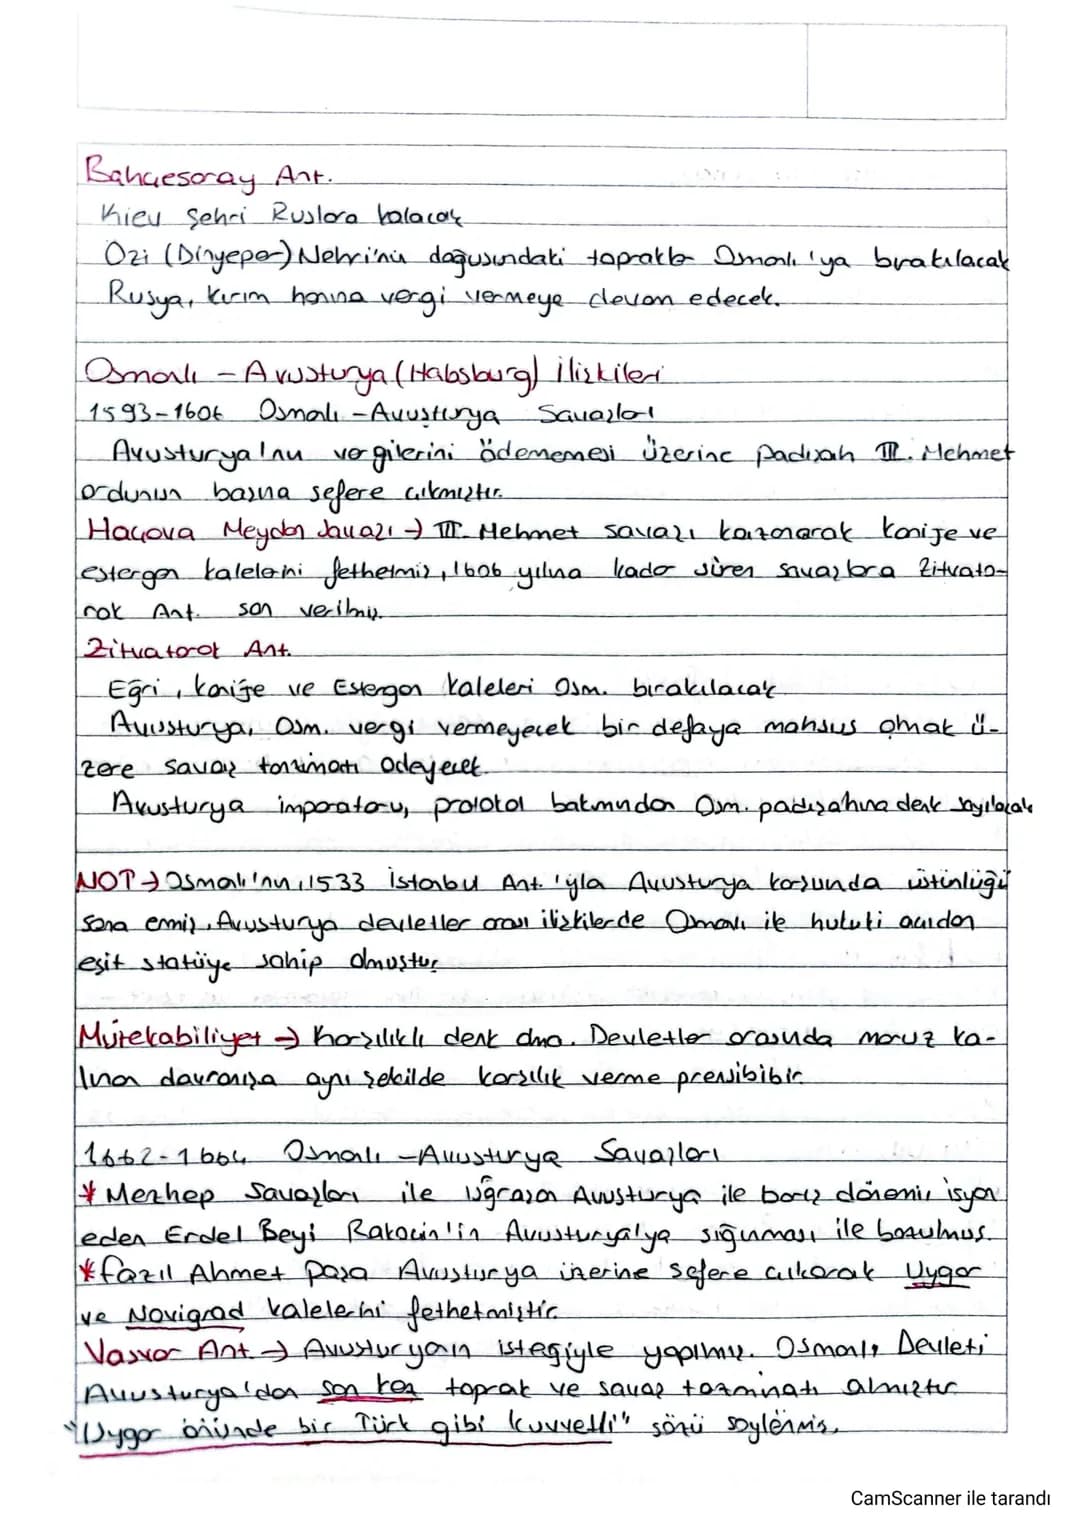 Bahçesaray Ant.
Kiev Şehri Ruslara kalacak
Özi (Dinyeper) Nehri'nin doğusundaki topraklar Osmanlı'ya bırakılacak
Rusya, Kırım hanına vergi vermeye devam edecek.
Osmanlı - Avusturya (Habsburg) İlişkileri
1593-1606 Osmanlı - Avusturya Savaşları
Avusturya'nın vergilerini ödememesi üzerine padişah III. Mehmet
ordunun başına sefere çıkmıştır.
Haçova Meydan Savaşı → III. Mehmet savaşı kazanarak Kanije ve
estergon kalelerini fethetmiş, 1606 yılına kadar süren savaşlara Zitvato-
rok Ant. son verilmiş.
Zitvatorok Ant.
Eğri, Kanije ve Estergon kaleleri Osm. bırakılacak
Avusturya, Osm. vergi vermeyecek bir defaya mahsus olmak ü-
zere savaş tazminatı ödeyecek.
Avusturya imparatoru, protokol bakımından Osm. padişahına denk sayılacak
NOT → Osmanlı'nın, 1533 İstanbul Ant.'yla Avusturya karşısında üstünlüğü
sona ermiş, Avusturya devletler arası ilişkilerde Osmanlı ile hukuki açıdan
eşit statüye sahip olmuştur
Mütekabiliyet → Karşılıklı denk olma. Devletler arasında maruz ka-
lınan davranışa aynı şekilde karşılık verme prensibibir.
1662-1664 Osmanlı - Avusturya Savaşları
* Mezhep Savaşları ile uğraşan Avusturya ile barış dönemi, isyan
eden Erdel Beyi Rakoçin'in Avusturya'ya sığınması ile bozulmuş.
* Fazıl Ahmet Paşa Avusturya üzerine sefere çıkarak Uygar
ve Novigrad kalelerini fethetmiştir.
Vasvar Ant. → Avusturyanın isteğiyle yapılmış. Osmanlı Devleti
Avusturya'dan son kez toprak ve savaş tazminatı almıştır
"Uygar önünde bir Türk gibi kuvvetli" sözü söylenmiş.
CamScanner ile tarandı